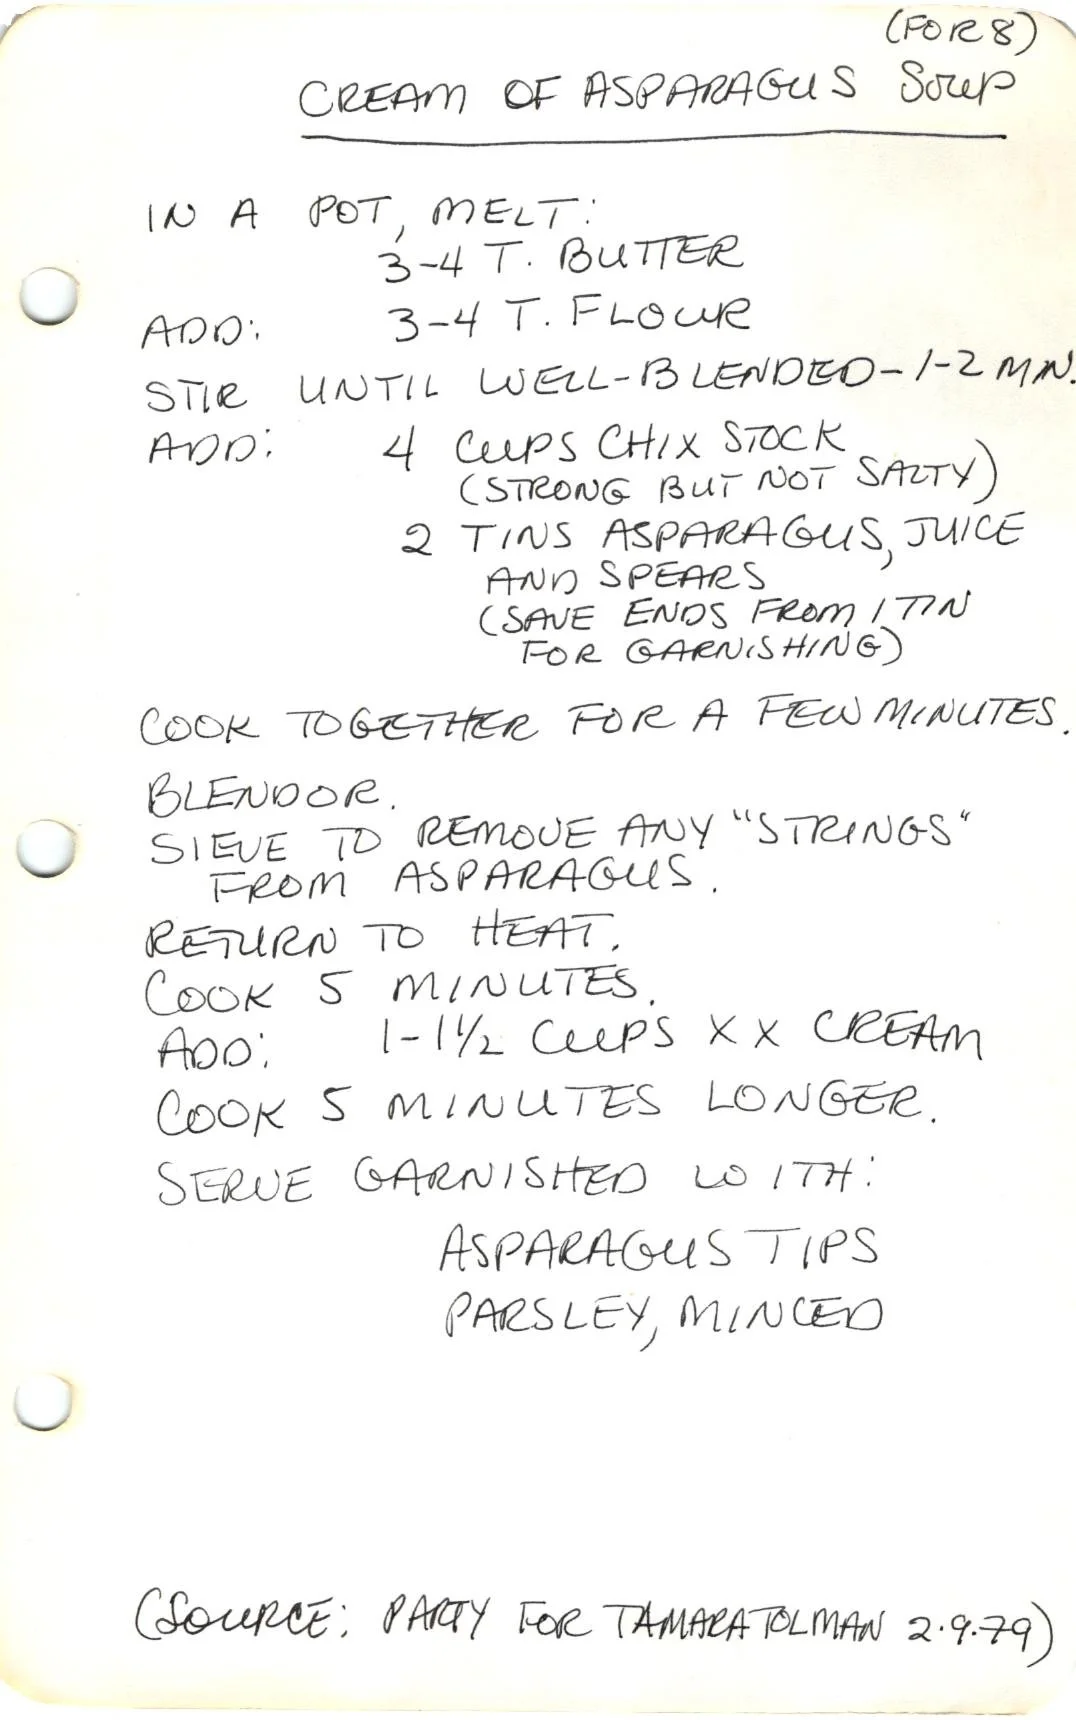 (FOR 8)
CREAM OF ASPARAGUS SOUP
IN A POT, MELT:
3-4 T. BUTTER
ADD: 3-4 T. FLOUR
STIR UNTIL WELL-BLENDED-1-2 MIN.
ADD: 4 CUPS CHIX STOCK
(STRONG BUT NOT SALTY)
2 TINS ASPARAGUS, JUICE
AND SPEARS
(SAVE ENDS FROM 1 TIN
FOR GARNISHING)
COOK TOGETHER FOR A FEW MINUTES.
BLENDOR.
SIEVE TO REMOVE ANY "STRINGS"
FROM ASPARAGUS.
RETURN TO HEAT.
COOK 5 MINUTES.
ADD: 1-1½ CUPS XX CREAM
COOK 5 MINUTES LONGER.
SERVE GARNISHED WITH:
ASPARAGUS TIPS
PARSLEY, MINCED
(SOURCE: PARTY FOR TAMARA TOLMAN 2.9.79)